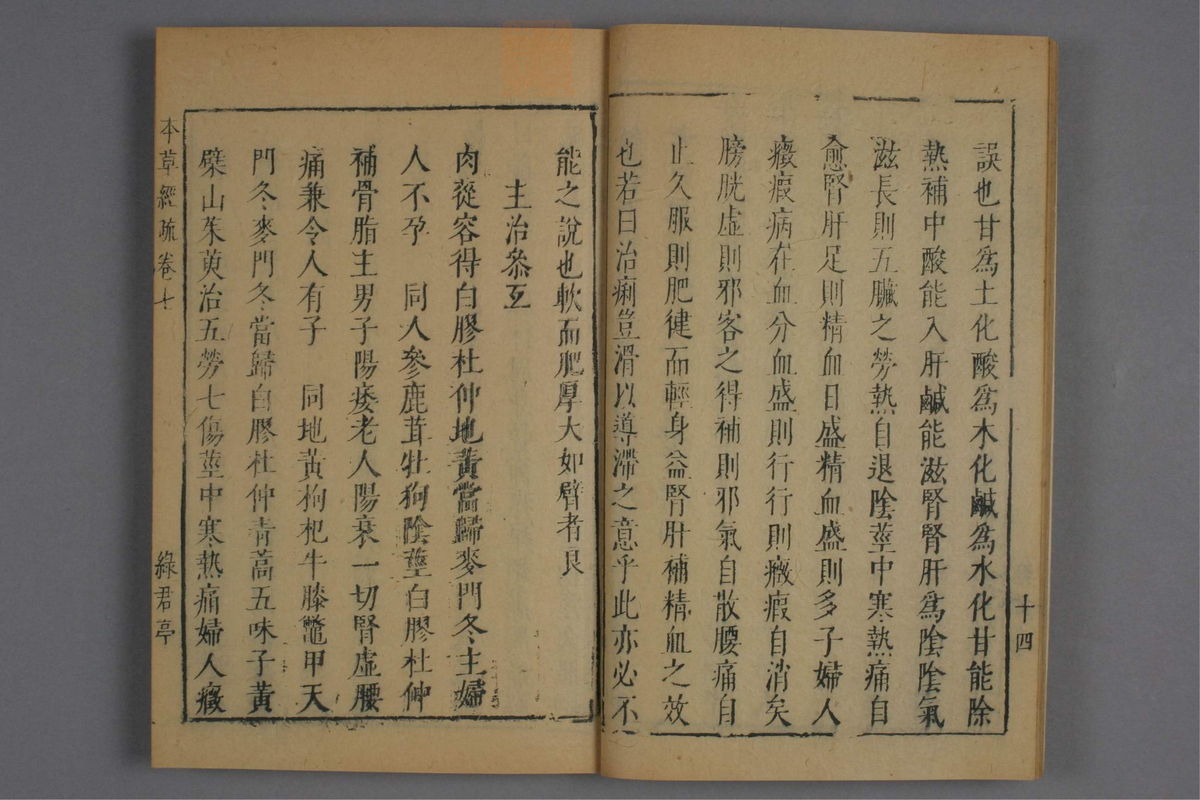 誤也甘爲土化酸爲木化鹹爲水化甘能除
熱補中酸能入肝鹹能滋腎腎肝爲陰陰氣
滋長則五臟之勞熱自退陰莖中寒熱痛自
愈腎肝足則精血日盛精血盛則多子婦人
癥瘕病在血分血盛則行行則癥瘕自消矣
膀胱虛則邪客之得補則邪氣自散腰痛自
止久服則肥健而輕身益腎肝補精血之效
也若曰治痢豈滑以導滯之意乎此亦必不
十四
能之說也軟而肥厚大如臂者良
主治叅互
肉蓯容得白膠杜仲地黃當歸麥門冬主婦
人不孕 同人參鹿茸牡狗陰莖白膠杜仲
補骨脂主男子陽痿老人陽衰一切腎虛腰
痛兼令人有子 同地黃枸杞牛膝鼈甲天
門冬麥門冬當歸白膠杜仲青蒿五味子黃
檗山茱萸治五勞七傷莖中寒熱痛婦人癥
本草經疏卷七
綠君亭